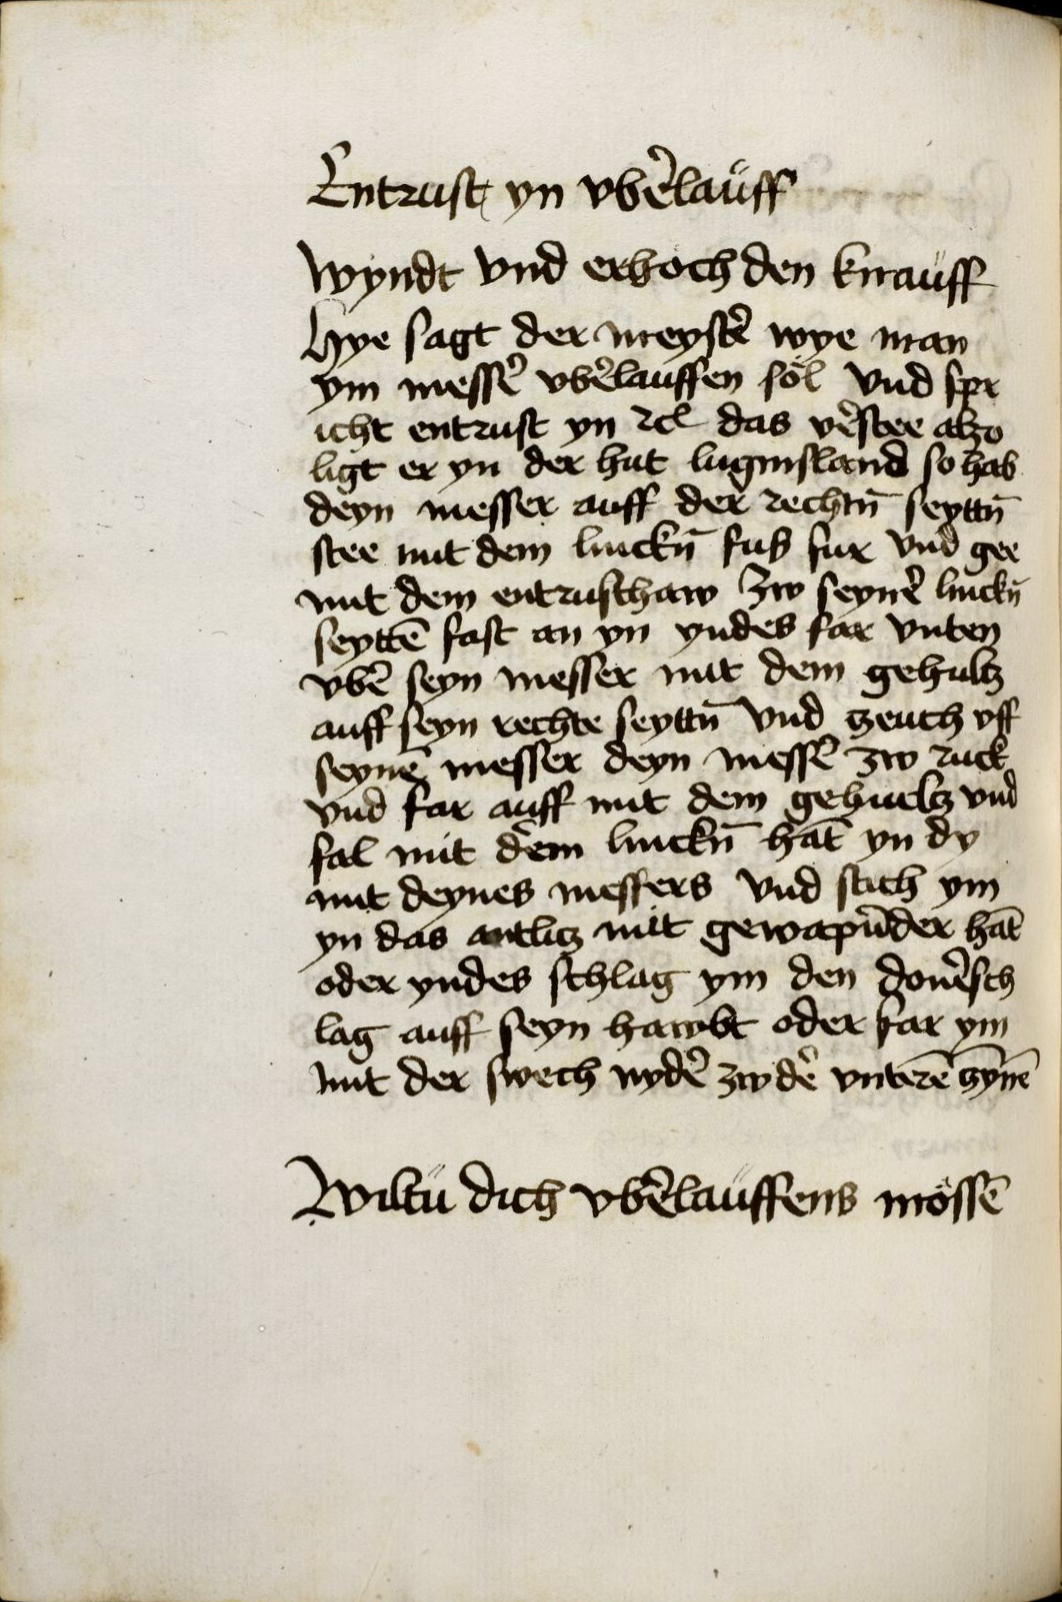 Entrust yn vberlauff
Wyndt vnd erhoch den knauff
Hye sagt der meyster wye man
ym messer vberlauffen söl vnd spr
icht entrust yn rcl das verstee alzo
ligt er yn der hut luginsland so hab
deyn messer auff der rechtn̄ seyttn̄
stee mit dem linckn̄ fuß fur vnd gee
mit dem entrusthaw zw seyner linckn̄
seyttē fast an yn yndes far vnten
vber seyn messer mit dem gehultz
auff seyn rechte seyttn̄ vnd zeuch vff
seynē messer deyn messer zw ruck
vnd far auff mit dem gehueltz vnd
fal mit dem linckn̄ hāt yn dy
mit deynes messers vnd stich ym
yn das antlitz mit gewapn̄der hāt
oder yndes schlag ym den donersch
lag auff seyn hawbt oder far ym
mit der swech nyder zw der vnterē zynē
Wiltu dich vberlauffens mössē